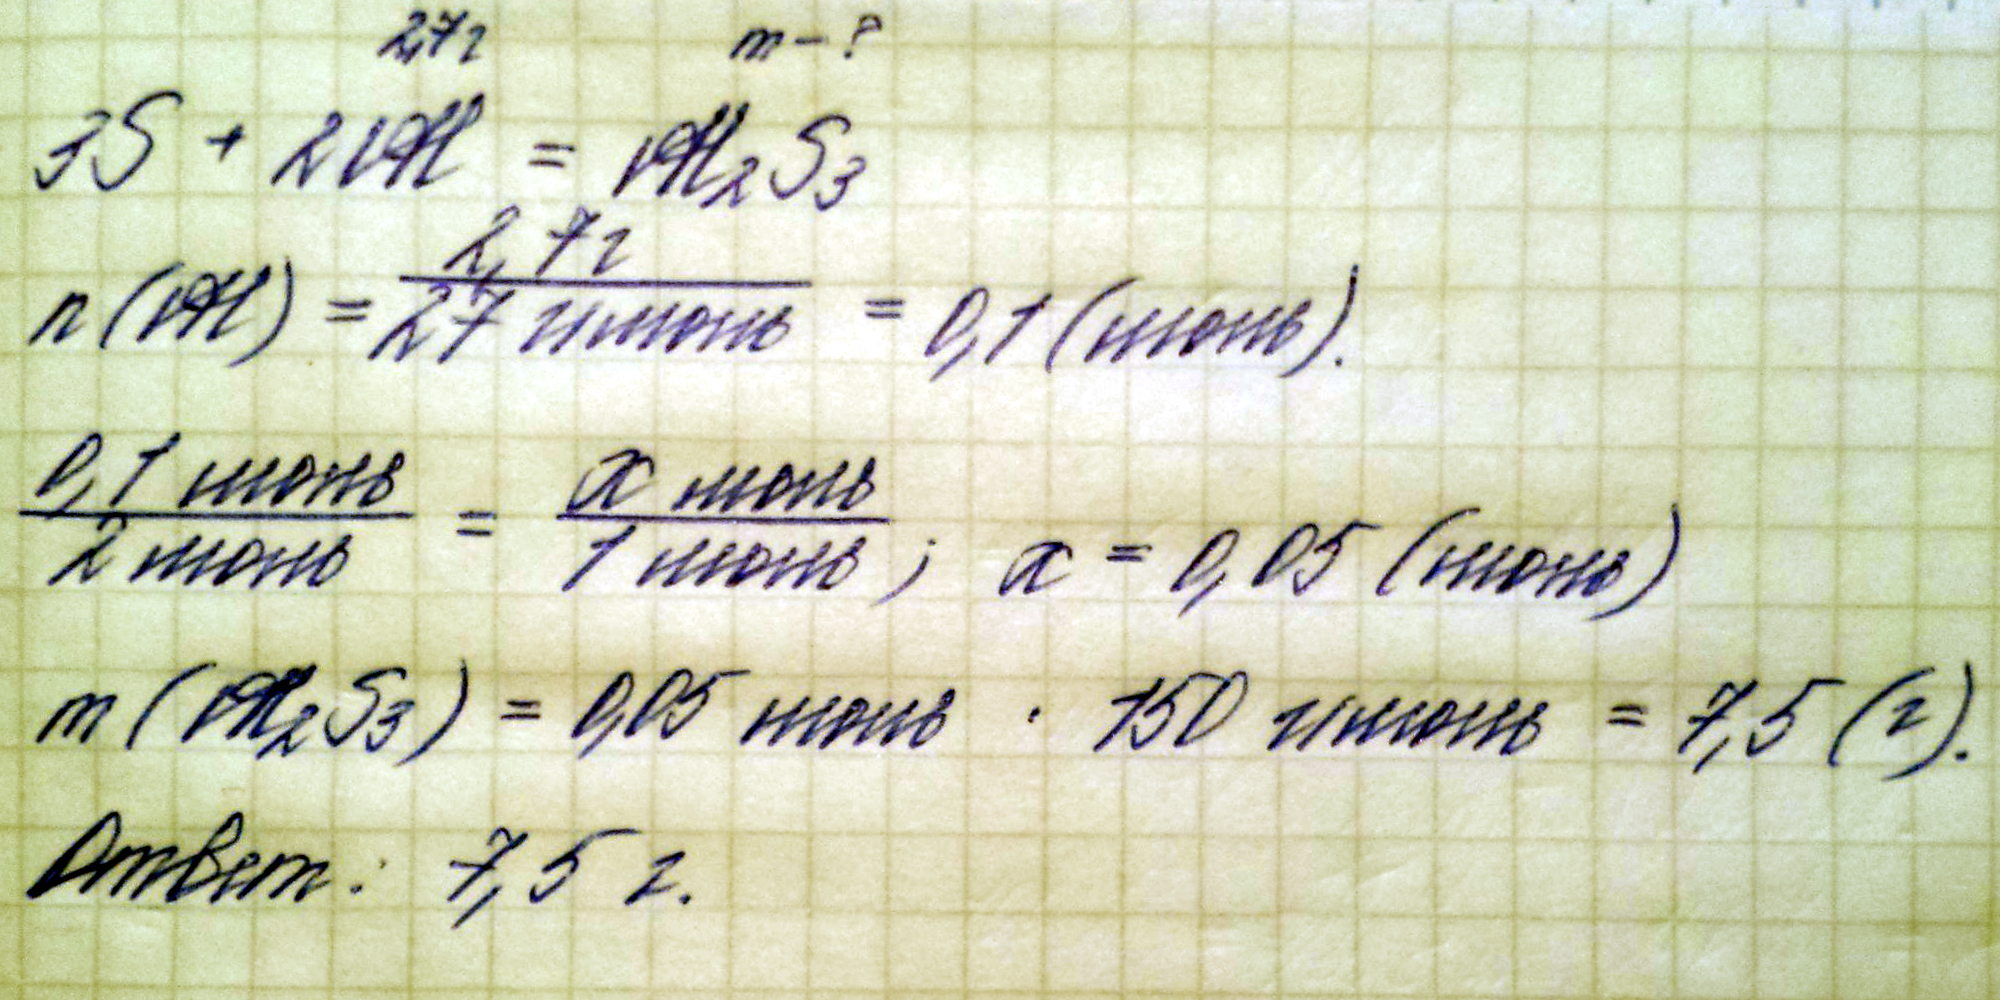 2,7г m - ?
3S + 2Al = Al₂S₃
n (Al) = 2,7г / 27 г/моль = 0,1 (моль).
0,1 моль / 2 моль = x моль / 1 моль ; x = 0,05 (моль)
m (Al₂S₃) = 0,05 моль · 150 г/моль = 7,5 (г).
Ответ: 7,5 г.